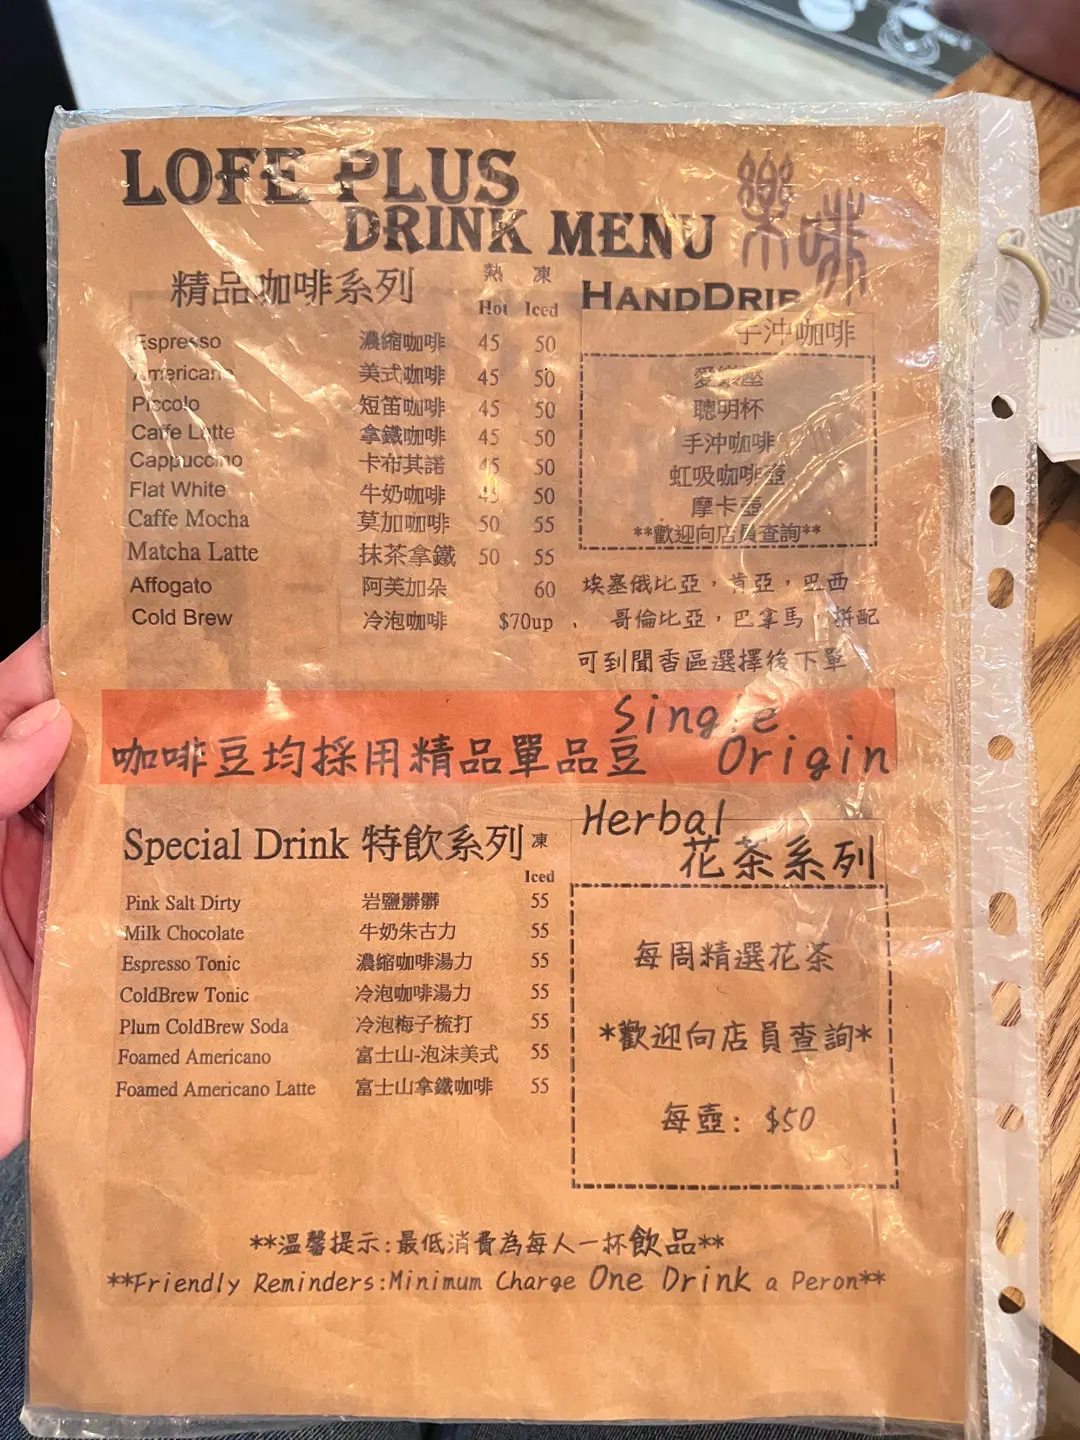 LOFE PLUS
DRINK MENU
樂啡
精品咖啡系列
熱 凍
Hot Iced
Espresso 濃縮咖啡 45 50
Americano 美式咖啡 45 50
Piccolo 短笛咖啡 45 50
Caffe Latte 拿鐵咖啡 45 50
Cappuccino 卡布其諾 45 50
Flat White 牛奶咖啡 45 50
Caffe Mocha 莫加咖啡 50 55
Matcha Latte 抹茶拿鐵 50 55
Affogato 阿芙加朵 60
Cold Brew 冷泡咖啡 $70up
HANDDRIP
手沖咖啡
愛樂壓
聰明杯
手沖咖啡
虹吸咖啡壺
摩卡壺
**歡迎向店員查詢**
埃塞俄比亞,肯亞,巴西
、 哥倫比亞,巴拿馬,拼配
可到聞香區選擇後下單
Single
咖啡豆均採用精品單品豆 Origin
Special Drink 特飲系列 凍
Iced
Pink Salt Dirty 岩鹽髒髒 55
Milk Chocolate 牛奶朱古力 55
Espresso Tonic 濃縮咖啡湯力 55
ColdBrew Tonic 冷泡咖啡湯力 55
Plum ColdBrew Soda 冷泡梅子梳打 55
Foamed Americano 富士山-泡沫美式 55
Foamed Americano Latte 富士山拿鐵咖啡 55
Herbal
花茶系列
每周精選花茶
*歡迎向店員查詢*
每壺: $50
**溫馨提示:最低消費為每人一杯飲品**
**Friendly Reminders:Minimum Charge One Drink a Peron**